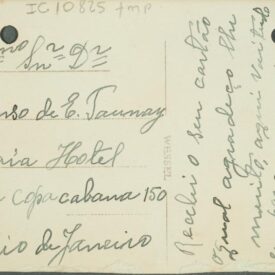 IC10825 tmp
mo
Snr. Dr
nso de E. Taunay
Hotel
Copacabana 150
io de Janeiro
Recebi o seu cartão
o qual agradeço lhe
muito, aqui